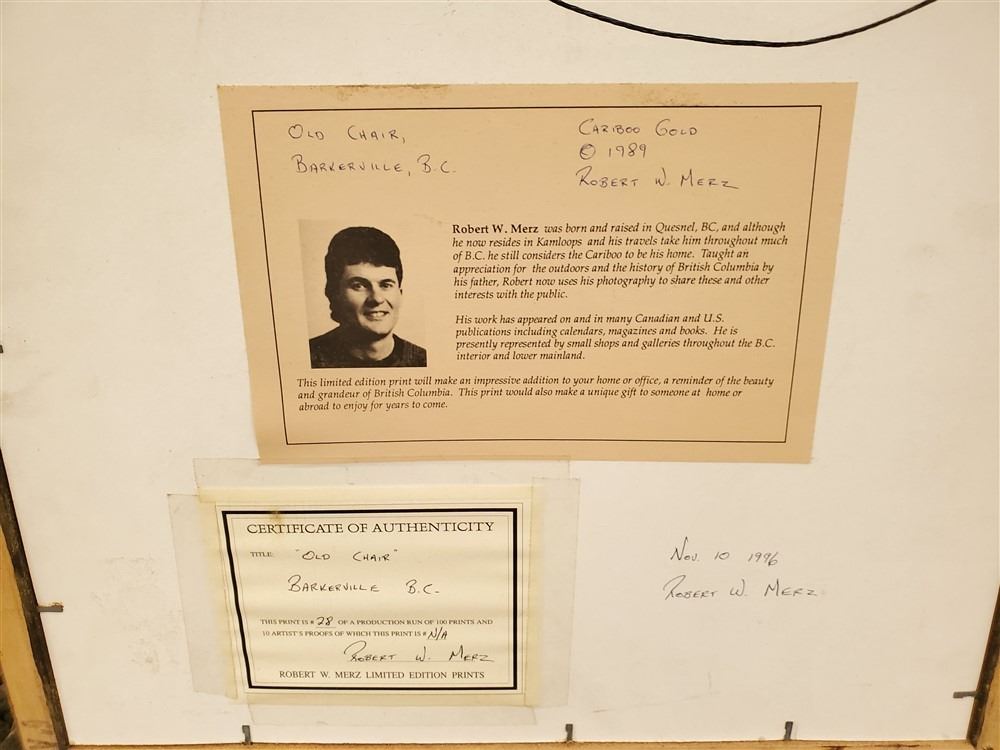 OLD CHAIR,
BARKERVILLE, B.C.
CARIBOO GOLD
© 1989
ROBERT W. MERZ
Robert W. Merz was born and raised in Quesnel, BC, and although
he now resides in Kamloops and his travels take him throughout much
of B.C. he still considers the Cariboo to be his home. Taught an
appreciation for the outdoors and the history of British Columbia by
his father, Robert now uses his photography to share these and other
interests with the public.
His work has appeared on and in many Canadian and U.S.
publications including calendars, magazines and books. He is
presently represented by small shops and galleries throughout the B.C.
interior and lower mainland.
This limited edition print will make an impressive addition to your home or office, a reminder of the beauty
and grandeur of British Columbia. This print would also make a unique gift to someone at home or
abroad to enjoy for years to come.
CERTIFICATE OF AUTHENTICITY
TITLE: "OLD CHAIR"
BARKERVILLE B.C.
THIS PRINT IS # 28 OF A PRODUCTION RUN OF 100 PRINTS AND
10 ARTIST'S PROOFS OF WHICH THIS PRINT IS # N/A
ROBERT W. MERZ
ROBERT W. MERZ LIMITED EDITION PRINTS
NOV. 10 1996
ROBERT W. MERZ